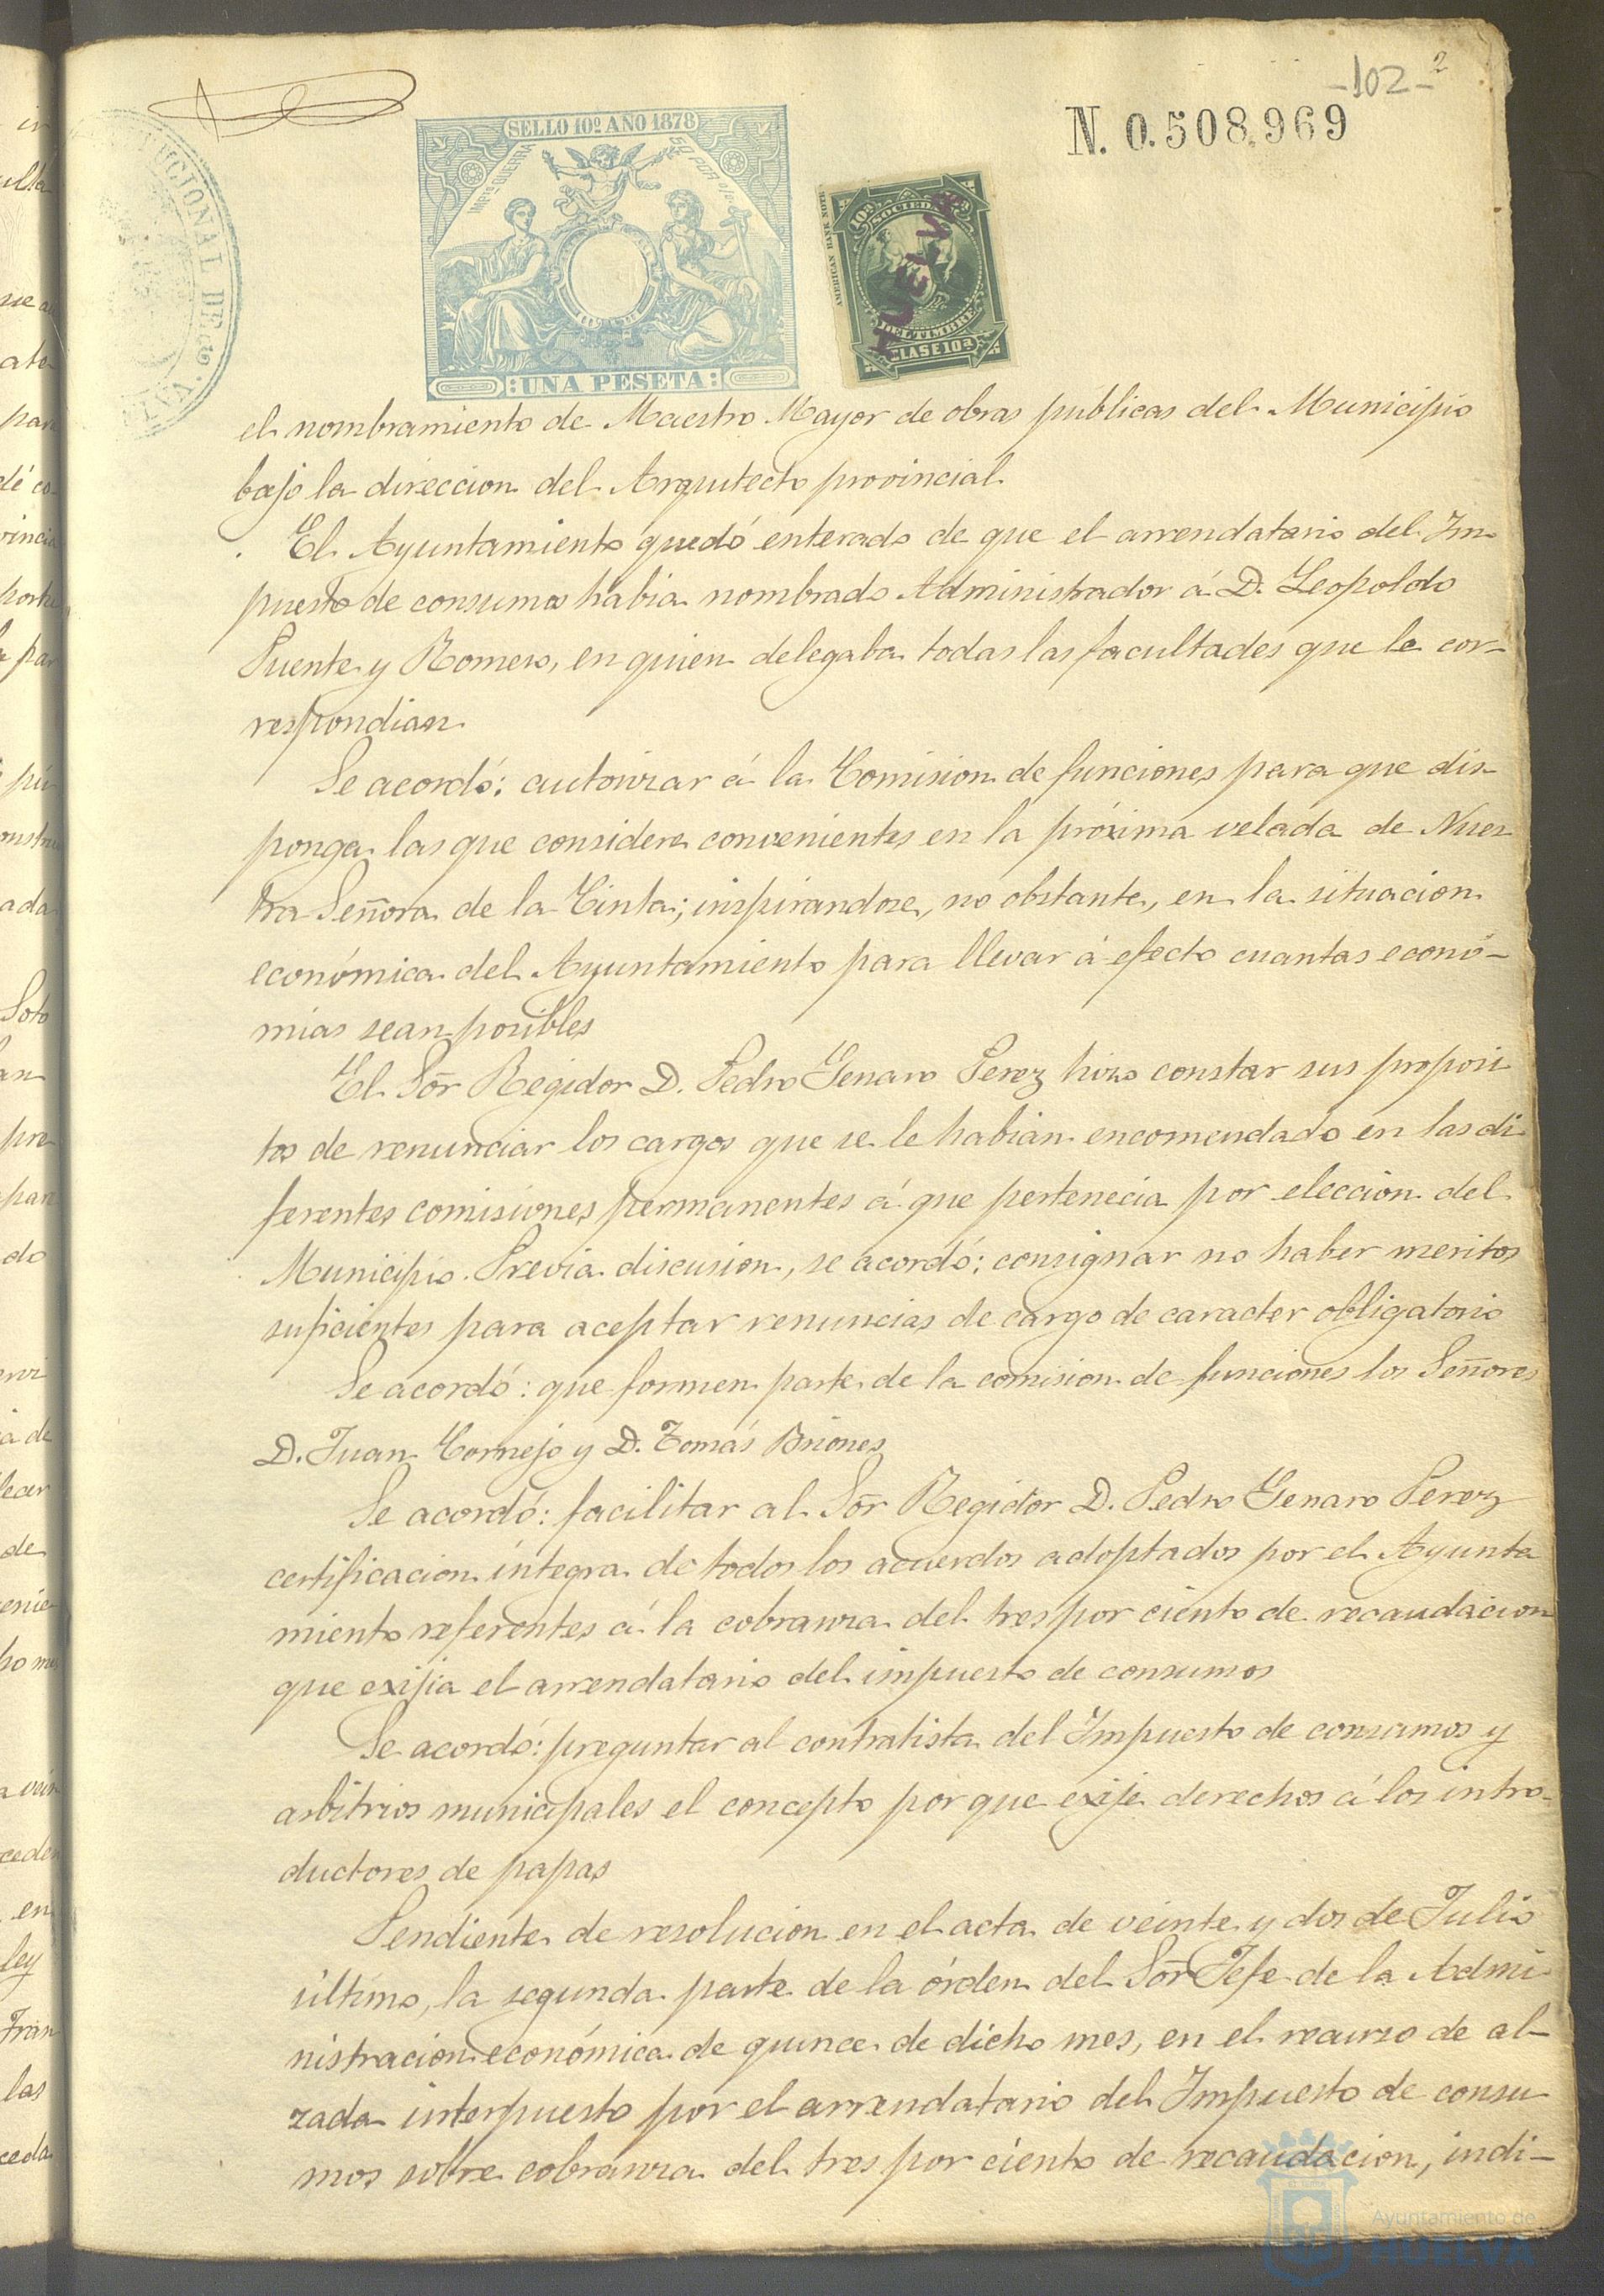 -102- 2
N. 0.508,969
SELLO 10º AÑO 1878
IMPTO GUERRA
50 POR o/o
UNA PESETA
AMERICAN BANK NOTE
10ª
SOCIEDAD
HUELVA
DEL TIMBRE
CLASE 10ª
UCIONAL DE
el nombramiento de Maestro Mayor de obras públicas del Municipio
bajo la direccion del Arquitecto provincial
El Ayuntamiento quedó enterado de que el arrendatario del Im-
puesto de consumos habia nombrado Administrador á D. Leopoldo
Puente y Romero, en quien delegaba todas las facultades que le cor-
respondian
Se acordó: autorizar á la Comision de funciones para que dis-
ponga las que considere convenientes en la próxima velada de Nues
tra Señora de la Cinta; inspirandose, no obstante, en la situacion
económica del Ayuntamiento para llevar á efecto cuantas econó-
mias sean posibles
El Sõr Regidor D. Pedro Genaro Perez hizo constar sus proposi
tos de renunciar los cargos que se le habian encomendado en las di
ferentes comisiones permanentes á que pertenecia por eleccion del
Municipio. Previa discusion, se acordó: consignar no haber meritos
suficientes para aceptar renuncias de cargo de caracter obligatorio
Se acordó: que formen parte de la comision de funciones los Señores
D. Juan Cornejo y D. Tomás Briones
Se acordó: facilitar al Sõr Regidor D. Pedro Genaro Perez
certificacion integra de todos los acuerdos adoptados por el Ayunta
miento referentes á la cobranza del tres por ciento de recaudacion
que exijia el arrendatario del impuesto de consumos
Se acordó: preguntar al contratista del Impuesto de consumos y
arbitrios municipales el concepto por que exije derechos á los intro-
ductores de papas
Pendiente de resolucion en el acta de veinte y dos de Julio
último, la segunda parte de la órden del Sõr Jefe de la Admi
nistracion económica de quince de dicho mes, en el recurso de al-
zada interpuesto por el arrendatario del Impuesto de consu
mos sobre cobranza del tres por ciento de recaudacion, indi-
Ayuntamiento de
HUELVA